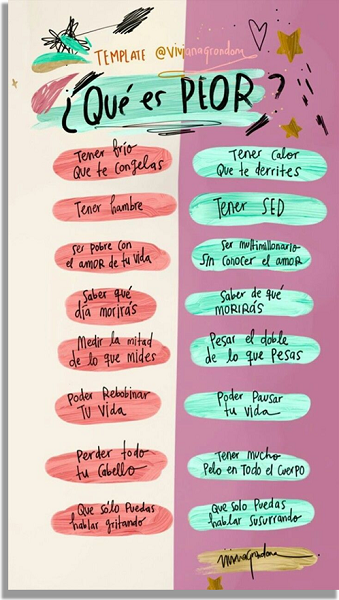 TEMPLATE @vivianagrondona
¿Qué es PEOR?
Tener frío
Que te congelas
Tener Calor
Que te derrites
Tener hambre
Tener SED
Ser pobre con
el amor de tu vida
Ser multimillonario
Sin conocer el amor
Saber qué
día morirás
Saber de qué
MORIRÁS
Medir la mitad
de lo que mides
Pesar el doble
de lo que pesas
Poder Rebobinar
TU VIDA
Poder Pausar
tu vida
Perder todo
tu Cabello
Tener mucho
Pelo en Todo el CUERPO
Que sólo Puedas
hablar gritando
Que solo Puedas
hablar susurrando
vivianagrondona